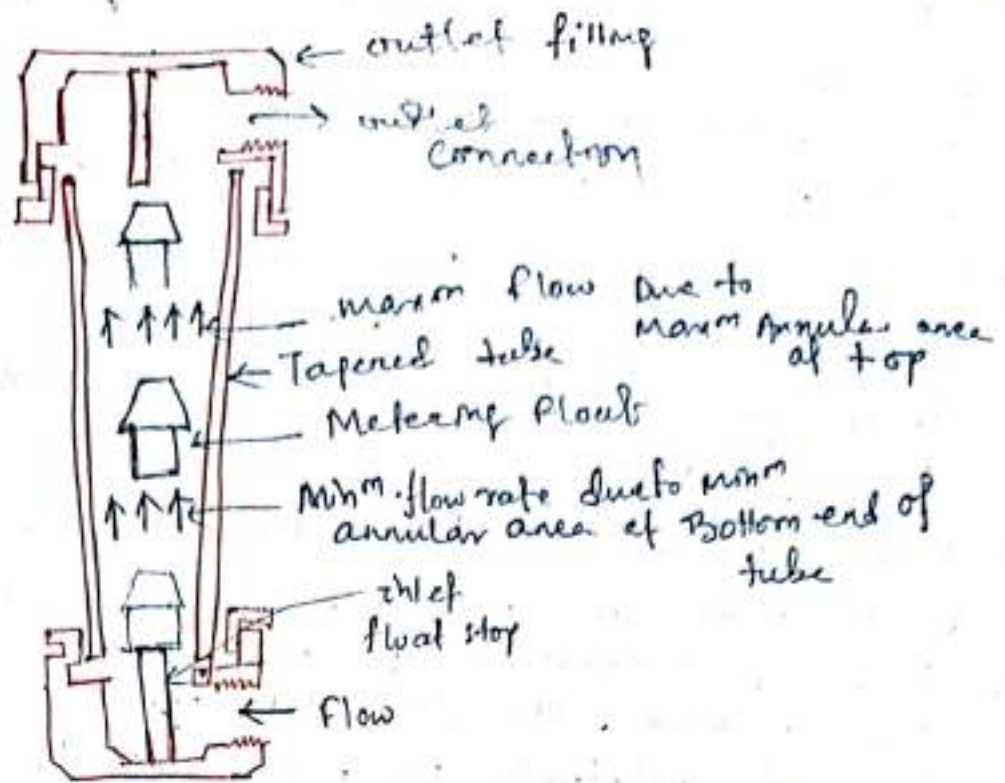 outlet filling
outlet
Connection
maxm flow Due to
Maxm Annular area
at top
Tapered tube
Metering Float
Minm flow rate due to minm
annular area at Bottom end of
tube
inlet
float stop
Flow